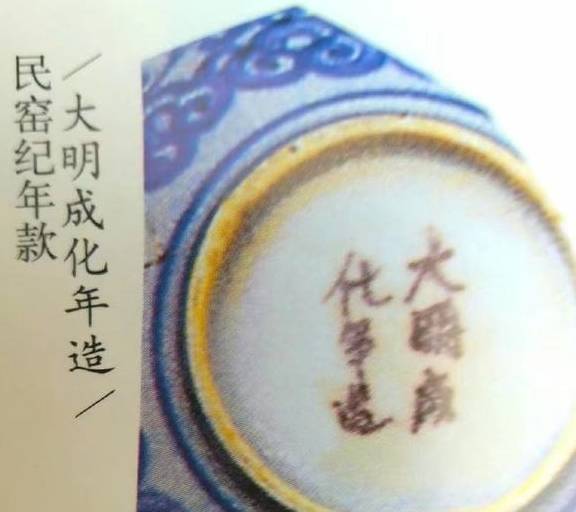 ／大明成化年造／
民窑纪年款
大明成
化年造